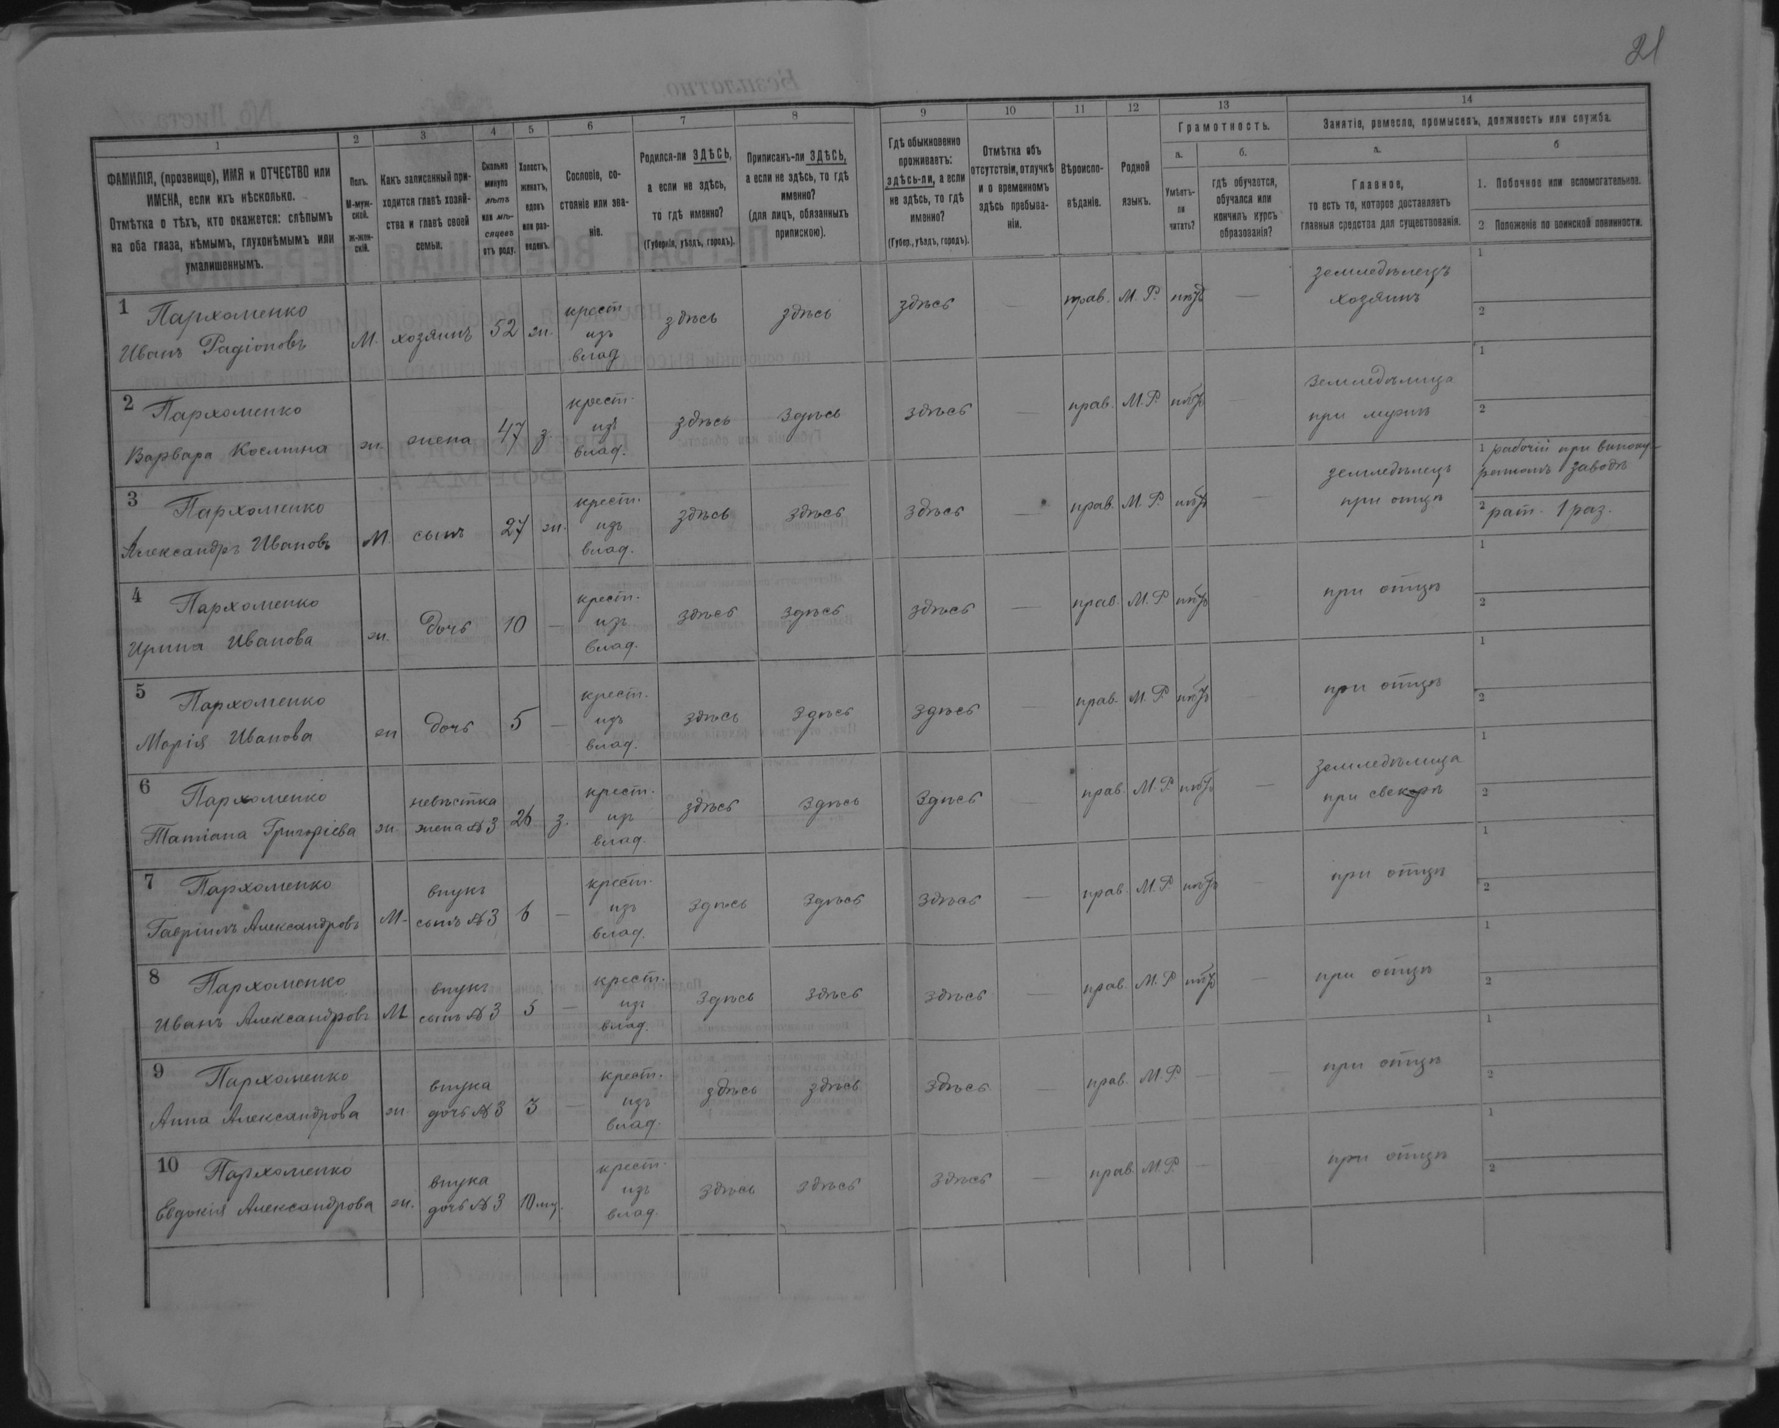 21
1
ФАМИЛІЯ, (прозвище), ИМЯ и ОТЧЕСТВО или
ИМЕНА, если ихъ нѣсколько.
Отмѣтка о тѣхъ, кто окажется: слѣпымъ
на оба глаза, нѣмымъ, глухонѣмымъ или
умалишеннымъ.
2
Полъ.
М-муж-
ской.
Ж-жен-
скій.
3
Какъ записанный при-
ходится главѣ хозяй-
ства и главѣ своей
семьи.
4
Сколько
минуло
лѣтъ
или мѣ-
сяцевъ
отъ роду.
5
Холостъ,
женатъ,
вдовъ
или раз-
веденъ.
6
Сословіе, со-
стояніе или зва-
ніе.
7
Родился-ли ЗДѢСЬ,
а если не здѣсь,
то гдѣ именно?
(Губернія, уѣздъ, городъ).
8
Приписанъ-ли ЗДѢСЬ,
а если не здѣсь, то гдѣ
именно?
(для лицъ, обязанныхъ
припискою).
9
Гдѣ обыкновенно
проживаетъ:
здѣсь-ли, а если
не здѣсь, то гдѣ
именно?
(Губер., уѣздъ, городъ).
10
Отмѣтка объ
отсутствіи, отлучкѣ
и о временномъ
здѣсь пребыва-
ніи.
11
Вѣроиспо-
вѣданіе.
12
Родной
языкъ.
13
Грамотность.
а.
Умѣетъ-
ли
читать?
б.
гдѣ обучается,
обучался или
кончилъ курсъ
образованія?
14
Занятіе, ремесло, промыселъ, должность или служба.
а.
Главное,
то есть то, которое доставляетъ
главныя средства для существованія.
б
1. Побочное или вспомогательное.
2 Положеніе по воинской повинности.
1
Пархоменко
Иванъ Радіоновъ
М.
хозяинъ
52
ж.
крест
изъ
влад
здѣсь
здѣсь
здѣсь
—
прав.
М. Р.
нѣтъ
—
земледѣлецъ
хозяинъ
1
2
2
Пархоменко
Варвара Космина
ж.
жена
47
з.
крест.
изъ
влад.
здѣсь
здѣсь
здѣсь
—
прав.
М. Р.
нѣтъ
—
земледѣлица
при мужѣ
1
2
3
Пархоменко
Александръ Ивановъ
М.
сынъ
27
ж.
крест.
изъ
влад.
здѣсь
здѣсь
здѣсь
—
прав.
М. Р.
нѣтъ
—
земледѣлецъ
при отцѣ
1 рабочій при виноку-
ренномъ заводѣ
2 рат. 1 раз.
4
Пархоменко
Ирина Иванова
ж.
дочь
10
—
крест.
изъ
влад.
здѣсь
здѣсь
здѣсь
—
прав.
М. Р
нѣтъ
—
при отцѣ
1
2
5
Пархоменко
Марія Иванова
ж
дочь
5
—
крест.
изъ
влад.
здѣсь
здѣсь
здѣсь
—
прав.
М. Р
нѣтъ
—
при отцѣ
1
2
6
Пархоменко
Татіана Григоріева
ж.
невѣстка
жена №3
26
з.
крест.
изъ
влад.
здѣсь
здѣсь
здѣсь
—
прав
М. Р
нѣтъ
—
земледѣлица
при свекрѣ
1
2
7
Пархоменко
Гавріилъ Александровъ
М.
внукъ
сынъ №3
6
—
крест.
изъ
влад.
здѣсь
здѣсь
здѣсь
—
прав.
М. Р
нѣтъ
—
при отцѣ
1
2
8
Пархоменко
Иванъ Александровъ
М
внукъ
сынъ №3
5
—
крест.
изъ
влад.
здѣсь
здѣсь
здѣсь
—
прав.
М. Р
нѣтъ
—
при отцѣ
1
2
9
Пархоменко
Анна Александрова
ж.
внука
дочь №3
3
—
крест.
изъ
влад.
здѣсь
здѣсь
здѣсь
—
прав.
М. Р.
—
—
при отцѣ
1
2
10
Пархоменко
Евдокія Александрова
ж.
внука
дочь №3
10 мѣ.
крест.
изъ
влад.
здѣсь
здѣсь
здѣсь
—
прав.
М. Р.
—
—
при отцѣ
1
2